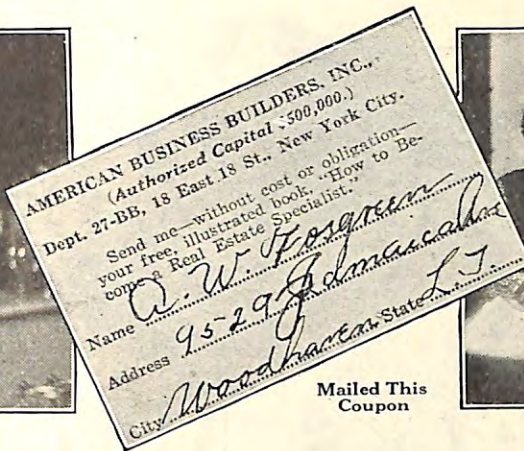 AMERICAN BUSINESS BUILDERS, INC.,
(Authorized Capital $500,000.)
Dept. 27-BB, 18 East 18 St., New York City.
Send me—without cost or obligation—
your free, illustrated book, "How to Be-
come a Real Estate Specialist."
Name A. W. Fosgreen
Address 95-29 Jamaica Ave
City Woodhaven State L.I.
Mailed This
Coupon